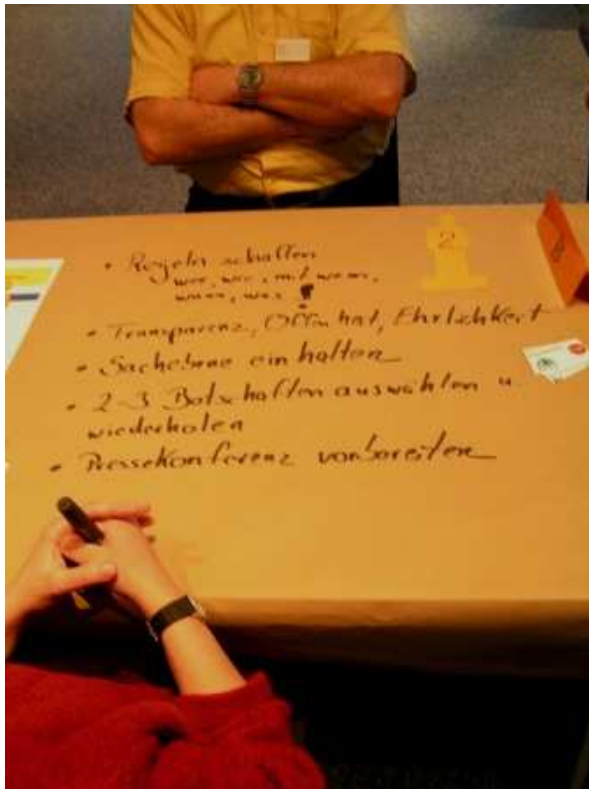 • Regeln schaffen
wer, wie, mit wem,
wann, was !
• Transparenz, Offenheit, Ehrlichkeit
• Sachebene einhalten
• 2-3 Botschaften auswählen u.
wiederholen
• Pressekonferenz vorbereiten
2